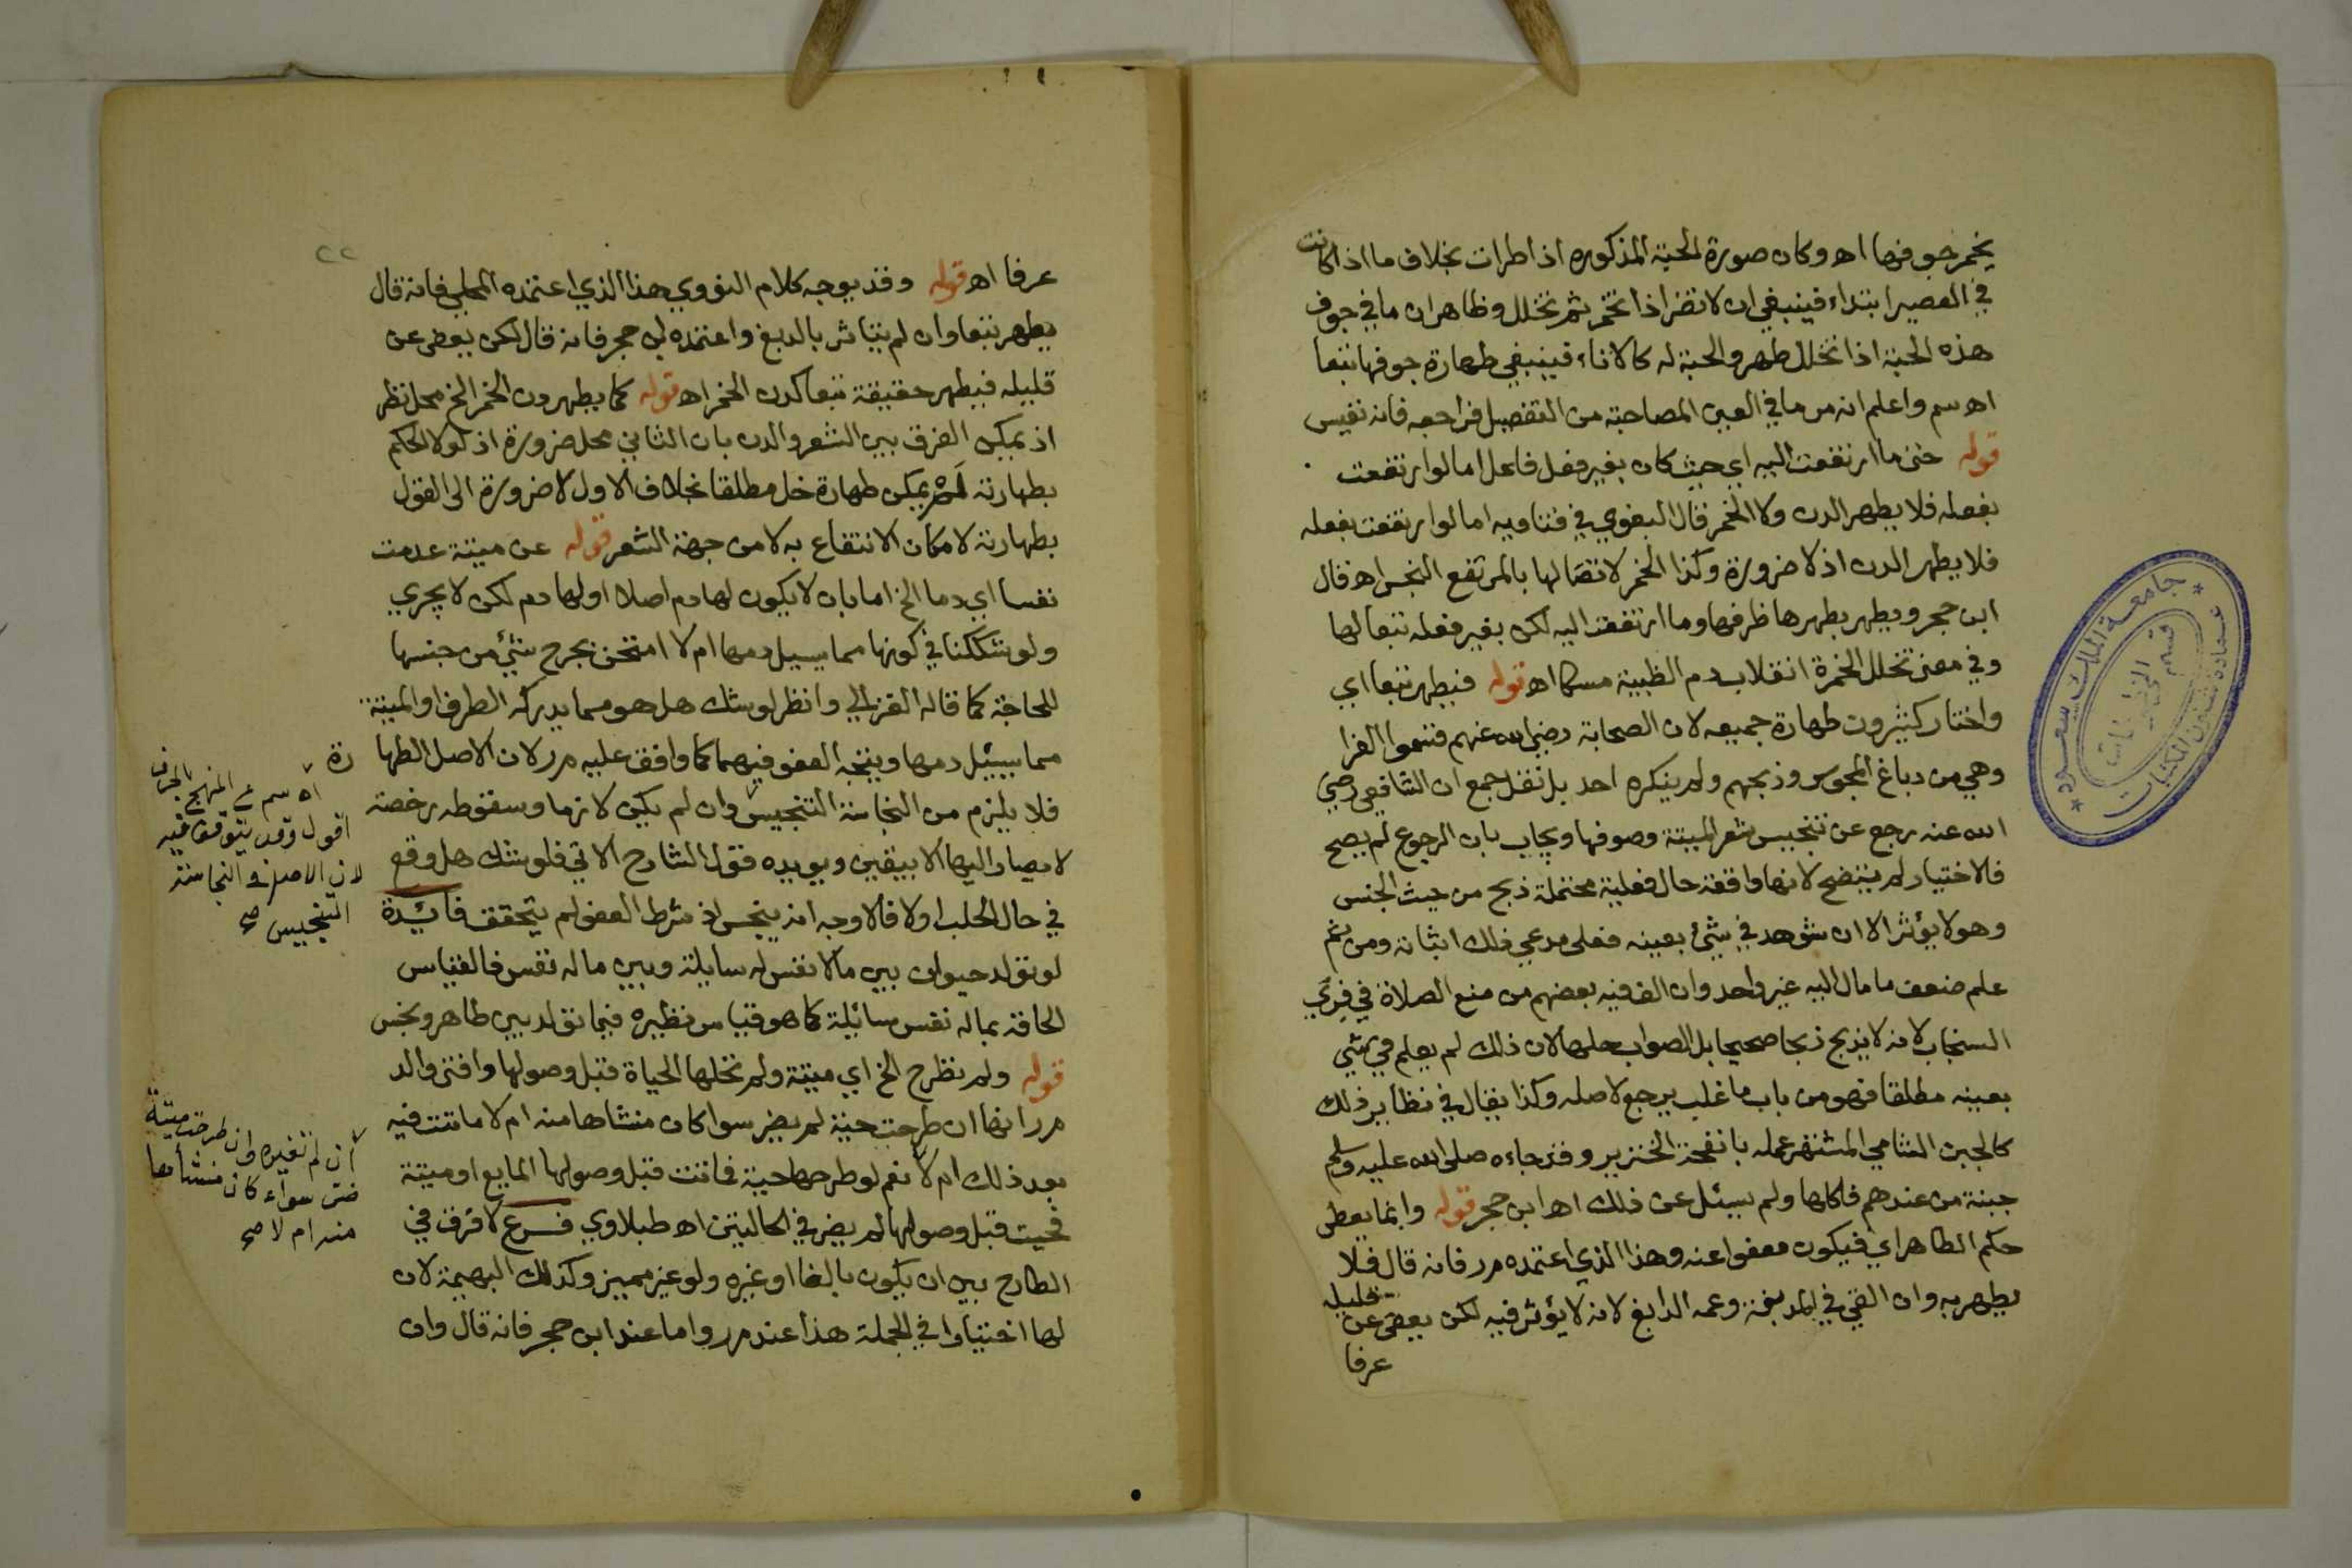 يخمر جوفها اه وكان صورة الحبة المذكوره اذا طرات بخلاف ما اذا كانت
في العصير ابتداء فينبغي ان لا تضر اذا تخمر ثم تخلل وظاهر ان ما في جوف
هذه الحبة اذا تخلل طهر والحبة له كالاناء فينبغي طهارة جوفها تبعا
اه سم واعلم انه مر ما في العين المصاحبة من التفصيل فراجعه فانه نفيس
قوله حتى ما ارتفعت اليه اي حيث كان بغير فعل فاعل اما لو ارتفعت
بفعله فلا يطهر الدن ولا الخمر قال البغوي في فتاويه اما لو ارتفعت بفعله
فلا يطهر الدن اذ لا ضرورة وكذا الخمر لاتصالها بالمرتفع النجس اه قال
ابن حجر ويطهر بطهرها ظرفها وما ارتفعت اليه لكن بغير فعله تبعا لها
وفي معنى تخلل الخمرة انقلاب دم الظبية مسكا اه قوله فيطهر تبعا اي
واختار كثيرون طهارة جميعه لان الصحابة رضي الله عنهم قسموا الفرا
وهي من دباغ المجوس وذبحهم ولم ينكره احد بل نقل جمع ان الشافعي رضي
الله عنه رجع عن تنجيس شعر الميتة وصوفها ويجاب بان الرجوع لم يصح
فالاختيار لم يتضح لانها واقعة حال فعلية محتملة ذبح من حيث الجنس
وهو لا يؤثر الا ان شوهد في شئ بعينه فعلى مدعي ذلك اثباته ومن ثم
علم ضعف ما مال اليه غير واحد وان الف فيه بعضهم من منع الصلاة في فرى
السنجاب لانه لا يذبح ذبحا صحيحا بل الصواب حلها لان ذلك لم يعلم في شئ
بعينه مطلقا فهو من باب ما غلب يرجع لاصله وكذا يقال في نظاير ذلك
كالجبن الشامي المشتهر عمله بانفحة الخنزير وقد جاءه صلى الله عليه وسلم
جبنة من عندهم فاكلها ولم يسئل عن ذلك اه ابن حجر قوله وانما يعطى
حكم الطاهر اي فيكون معفوا عنه وهذا الذي اعتمده مر فانه قال فلا
يطهر به وان القي في المدبغة وعمه الدابغ لانه لا يؤثر فيه لكن يعفى عن قليله
عرفا
٢٢
عرفا اه قوله وقد يوجه كلام النووي هذا الذي اعتمده المحلي فانه قال
يطهر تبعا وان لم يتاثر بالدبغ واعتمده ابن حجر فانه قال لكن يعفى عن
قليله فيطهر حقيقة تبعا كدن الخمر اه قوله كما يطهر دن الخمر الخ محل نظر
اذ يمكن الفرق بين الشعر والدن بان الثاني محل ضرورة اذ لولا الحكم
بطهارته لم يمكن طهارة خل مطلقا بخلاف الاول لا ضرورة الى القول
بطهارته لامكان الانتفاع به لا من جهة الشعر قوله عن ميتة عدمت
نفسا اي دما الخ اما بان لا يكون لها دم اصلا او لها دم لكن لا يجري
ولو شككنا في كونها مما يسيل دمها ام لا امتحن بجرح شئ من جنسها
للحاجة كما قاله الغزالي وانظر لو شك هل هو مما يدركه الطرف او الميتة
مما يسيل دمها ويتجه العفو فيهما كما وافق عليه مر لان الاصل الطهارة
فلا يلزم من النجاسة التنجيس وان لم يكن لازما وسقوطه رخصة
لا يصار اليها الا بيقين ويويده قول الشارح الاتي فلو شك هل وقع
في حال الحلب اولا فالاوجه انه ينجس اذ شرط العفو لم يتحقق فائدة
لو تولد حيوان بين ما لا نفس له سايلة وبين ما له نفس فالقياس
الحاقه بما له نفس سائلة كما هو قياس نظيره فيما تولد بين طاهر ونجس
قوله ولم تطرح الخ اي ميتة ولم تحلها الحياة قبل وصولها وافتى والد
مر انها ان طرحت حية لم يضر سوا كان منشاها منه ام لا ماتت فيه
بعد ذلك ام لا نعم لو طرحها حية فماتت قبل وصولها المايع او ميتة
فحييت قبل وصولها لم يضر في الحالتين اه طبلاوي فرع لا فرق في
الطارح بين ان يكون بالغا او غيره ولو غير مميز وكذلك البهيمة لان
لها اختيارا في الجملة هذا عند مر واما عند ابن حجر فانه قال وان
اه سم على المنهج بالحرف
اقول وقد يتوقف فيه
لان الاصل في النجاسة
التنجيس صح
ان لم تغيره وان طرحت ميتة
ضر سواء كان منشأها
منه ام لا صح
جامعة الملك سعود
عمادة شئون المكتبات
قسم المخطوطات